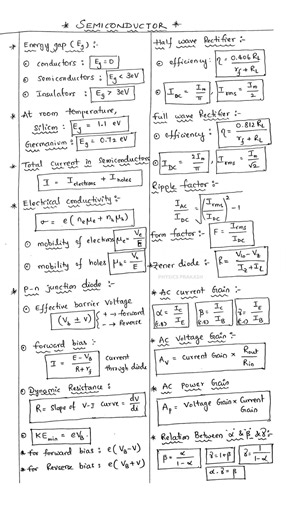 * SEMICONDUCTOR *
* Energy gap (Eg) :-
⊙ conductors : Eg = 0
⊙ semiconductors : Eg < 3eV
⊙ Insulators : Eg > 3eV
* At room temperature,
Silicon : Eg = 1.1 eV
Germanium : Eg = 0.72 eV
* Total Current in Semiconductors
I = I electrons + I holes
* Electrical conductivity :-
σ = e ( ne μe + nh μh )
⊙ mobility of electrons μe = Ve/E
⊙ mobility of holes μh = Vh/E
* p-n junction diode :-
⊙ Effective barrier voltage
(VB ± V) + → forward
- → Reverse
⊙ forward bias :-
I = E - VB / R + rj current through diode
⊙ Dynamic Resistance :
R = slope of V-I curve = dV/dI
⊙ KEmin = eVB.
* for forward bias : e(VB-V)
* for Reverse bias : e(VB+V)
Half wave Rectifier :-
⊙ efficiency : η = 0.406 RL / rf + RL
⊙ IDC = Im/π, Irms = Im/2
full wave Rectifier :-
⊙ efficiency : η = 0.812 RL / rf + RL
⊙ IDC = 2Im/π, Irms = Im/√2
Ripple factor :-
IAC/IDC = √(Irms/IDC)² - 1
form factor :- F = Irms/IDC
* Zener diode :-
* AC current Gain :-
α = IC/IE β = IC/IB γ = IE/IB
* AC Voltage Gain :-
AV = current Gain × Rout/Rin
* AC power Gain
AP = Voltage Gain × Current Gain
* Relation Between α & β & γ :-
β = α/1-α γ = 1+β γ = 1/1-α
α.γ = β